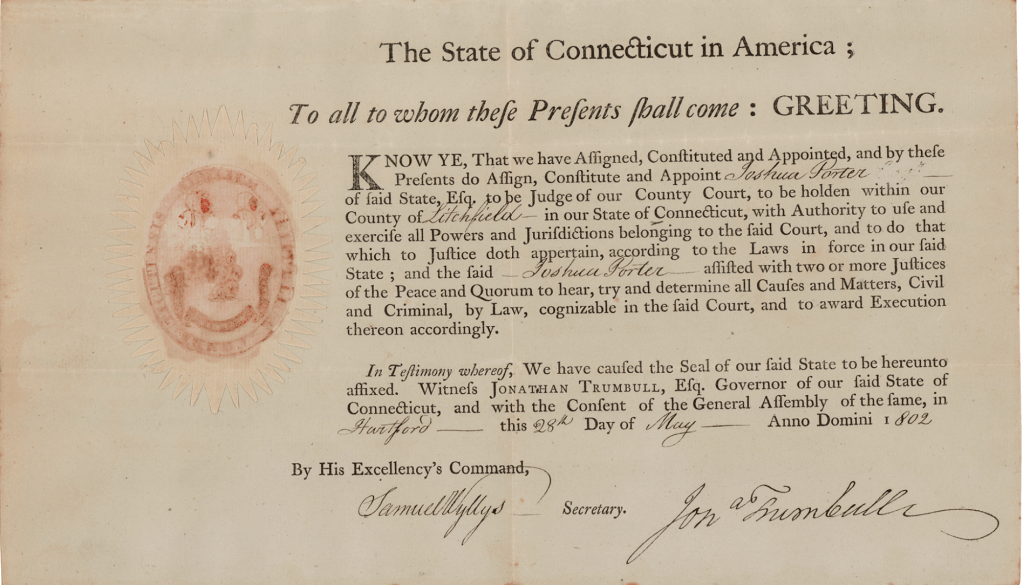 The State of Connecticut in America ;
To all to whom theſe Preſents ſhall come : GREETING.
KNOW YE, That we have Aſſigned, Conſtituted and Appointed, and by theſe
Preſents do Aſſign, Conſtitute and Appoint Joshua Porter
of ſaid State, Eſq. to be Judge of our County Court, to be holden within our
County of Litchfield — in our State of Connecticut, with Authority to uſe and
exerciſe all Powers and Juriſdictions belonging to the ſaid Court, and to do that
which to Juſtice doth appertain, according to the Laws in force in our ſaid
State ; and the ſaid — Joshua Porter — aſſiſted with two or more Juſtices
of the Peace and Quorum to hear, try and determine all Cauſes and Matters, Civil
and Criminal, by Law, cognizable in the ſaid Court, and to award Execution
thereon accordingly.
In Teſtimony whereof, We have cauſed the Seal of our ſaid State to be hereunto
affixed. Witneſs JONATHAN TRUMBULL, Eſq. Governor of our ſaid State of
Connecticut, and with the Conſent of the General Aſſembly of the ſame, in
Hartford — this 28th Day of May — Anno Domini 1802
By His Excellency's Command,
Samuel Wyllys Secretary. Jonª Trumbull